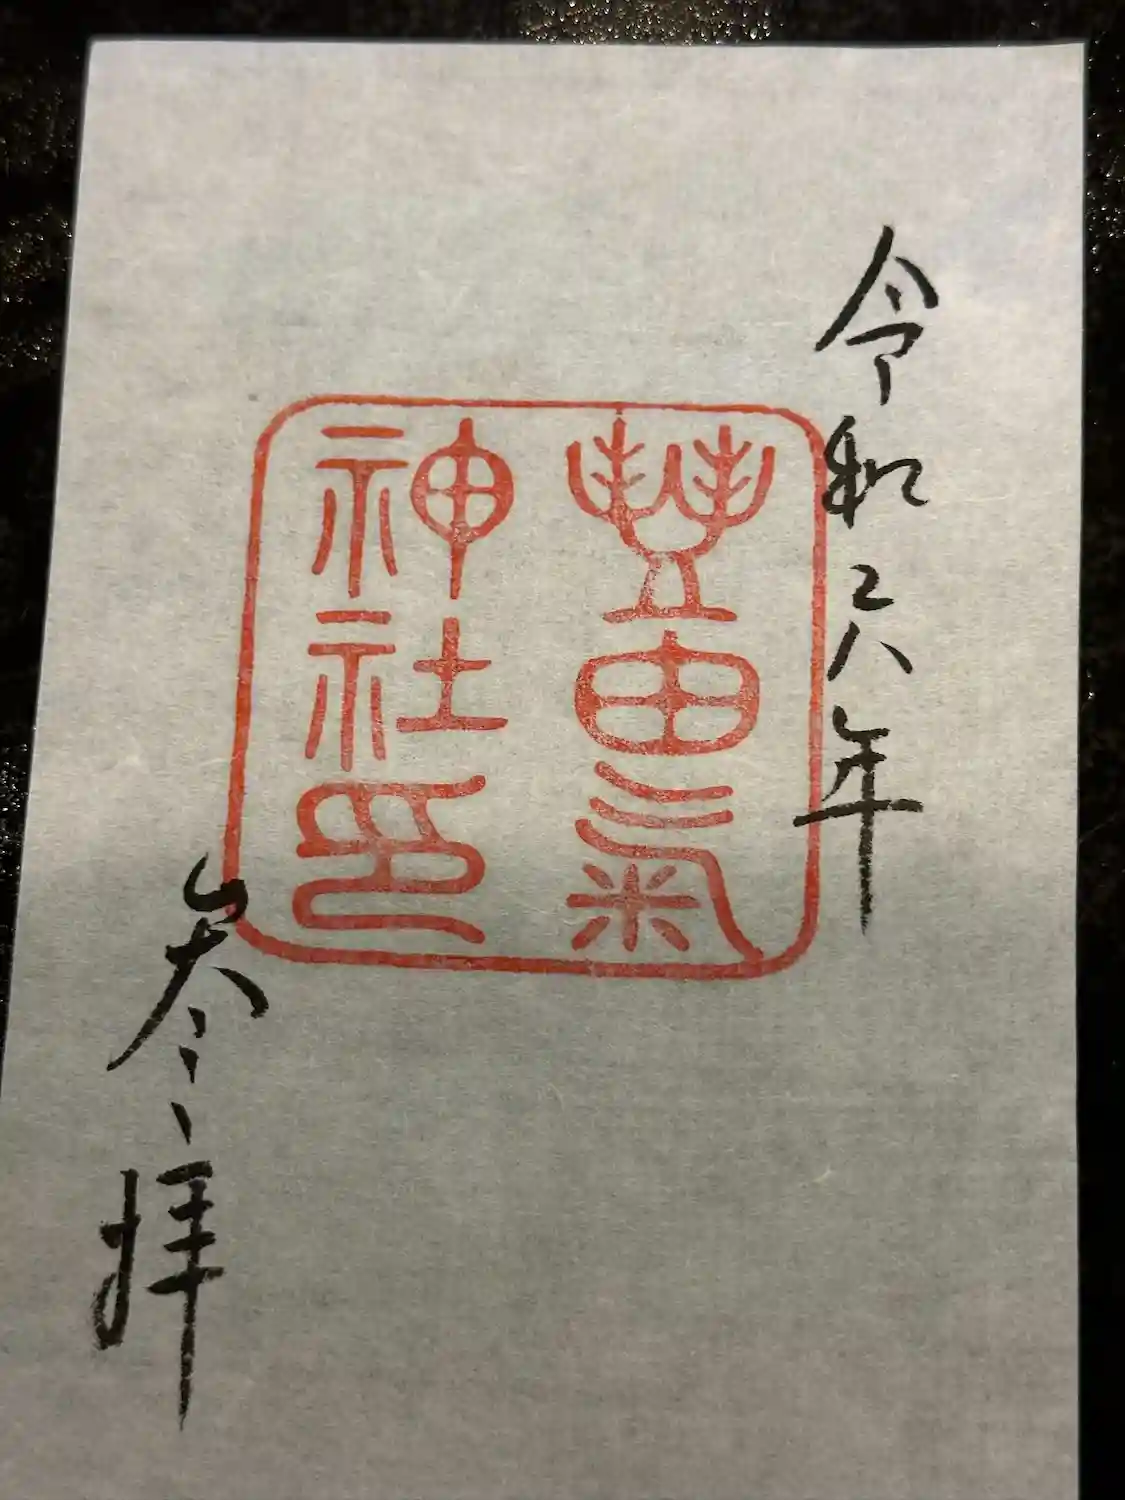 令和六年
豐由氣
神社印
参拝